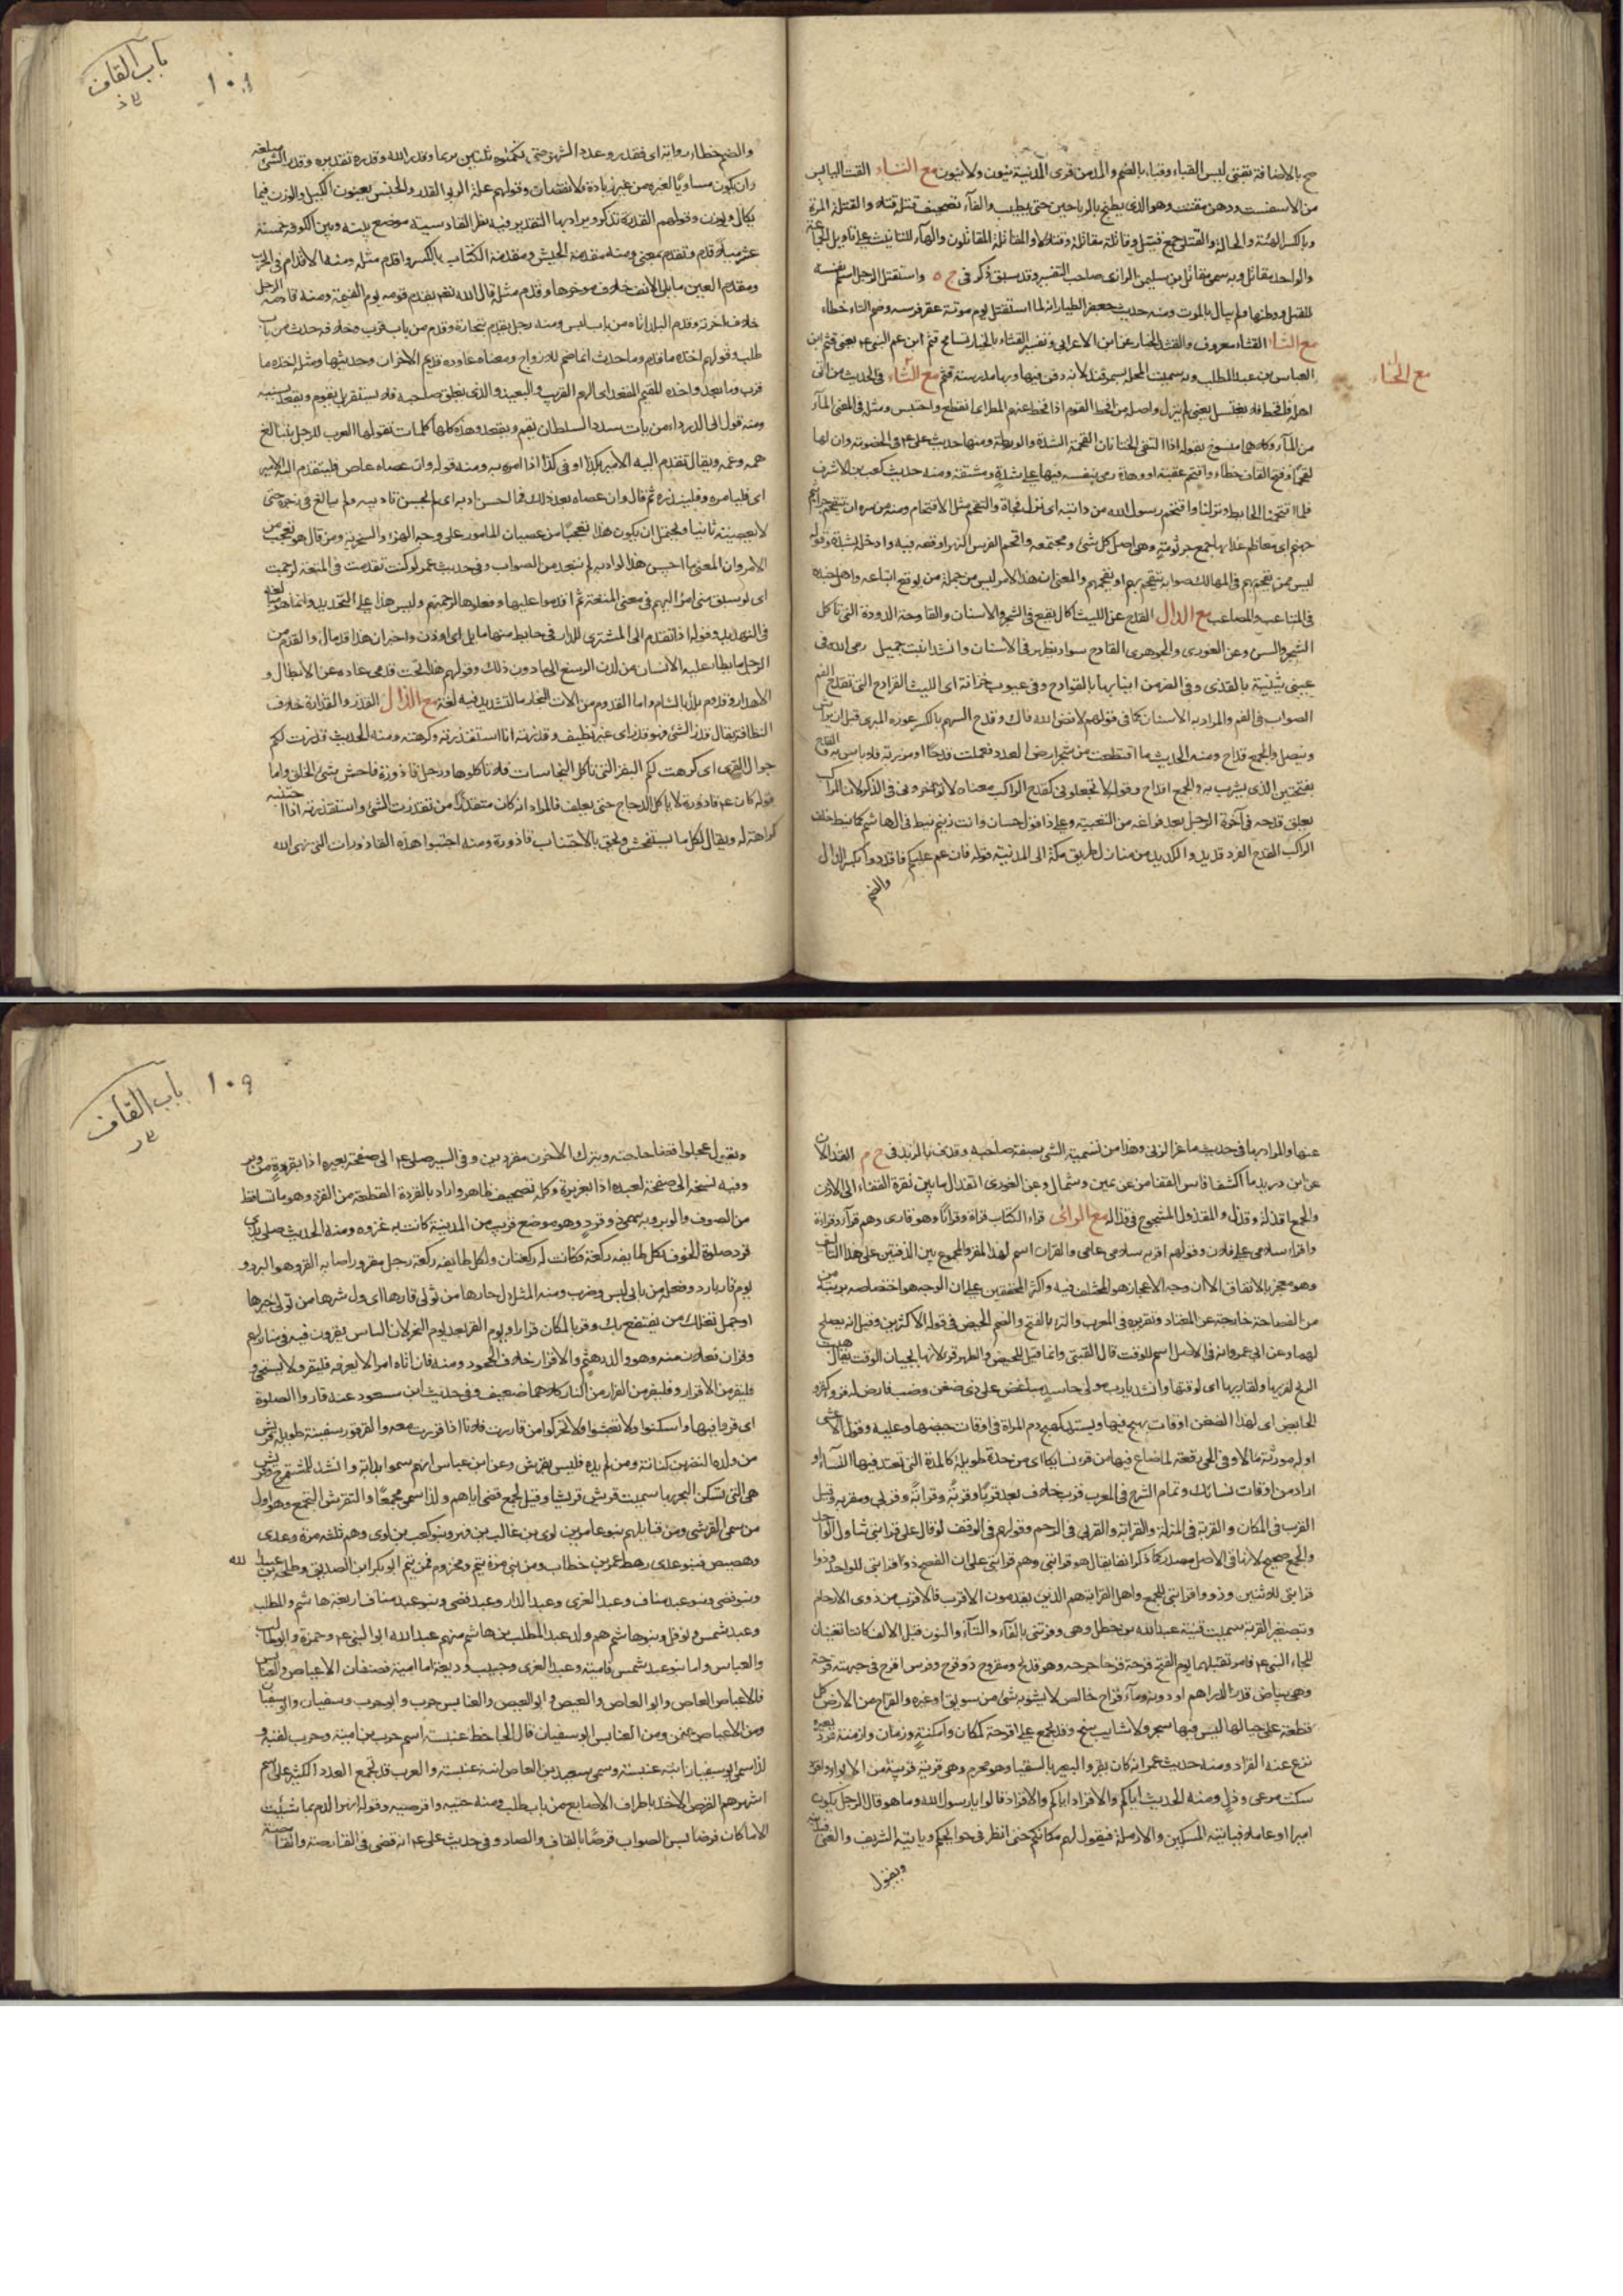 مع الخاء
صح بالاضافة تقبّى لبس القباء وقباء بالضم والمد من قرى المدينة ينون ولا ينون مع التاء القت اليابس
من الاسفست ودهن مقتت وهو الذي يطبخ بالرياحين حتى يطيب والفاء تصحيف قتله قتلا والقتلة المرة
وبالكسر الهيئة والحالة والقتلى جمع قتيل وقاتله مقاتلة وقتالا والمقاتلة المقاتلون والهاء للتانيث على تاويل الجماعة
والواحد مقاتل وبه سمى مقاتل بن سليمن الرازى صاحب التفسير وقد سبق ذكره فى واستقتل الرجل اسلم نفسه
للقتل ووطنها ولم يبال بالموت ومنه حديث جعفر الطيار انه لما استقتل يوم موتة عقر فرسه وضم التاء خطاء
مع الثاء القثاء معروف والقثد الخيار عن ابن الاعرابى وتفسير القثاء بالخيار تسامح قثم ابن عم النبى يعنى قثم ابن
العباس بن عبد المطلب وبه سميت المحلة بسمرقند لانه دفن فيها وبها مدرسة قثم مع الحاء فى الحديث من اتى
اهله فاقحط فلا يغتسل يعنى لم ينزل واصله من اقحط القوم اذا قحط عنهم المطر اى انقطع واحتبس ومثله فى المعنى الماء
من الماء وكلاهما منسوخ بقوله اذا التقى الختانان القحمة الشدة والورطة ومنها حديث على فى الخصومة وان لها
لقحما وفتح القاف خطاء واقتحم عقبة او وهدة رمى بنفسه فيها على شدة ومشقة ومنه حديث كعب بن الاشرف
فلما اقتحمنا الحايط ونزلنا واقتحم رسول الله من دابته اى نزل فجاة والتقحم مثل الاقتحام ومنه من سره ان يتقحم جراثيم
جهنم اى معاظم عذابها جمع جرثومة وهى اصل كل شئ ومجتمعه واقحم الفرس النهر اوقعه فيه وادخله بشدة وقوله
ليس ممن يقحم بهم فى المهالك صوابه يتقحم بهم او يقحمهم والمعنى ان هذا الامر ليس من جملة من يوقع اتباعه واهل جنده
فى المتاعب والمصاعب مع الدال القدح عن الليث اكال يقع فى الشجر والاسنان والقادحة الدودة التى تاكل
الشجر والسن وعن الغورى والجوهرى القادح سواد يظهر فى الاسنان وانشد لبيت جميل رمى الله فى
عينى بثينة بالقذى وفى الغر من انيابها بالقوادح وفى عيوب خزانة ابى الليث القوادح التى تقدح الفم
الصواب فى الفم والمراد به الاسنان كما فى قولهم لا فض الله فاك وقدح السهم بالكسر عوده المبرى قبل ان يراش
وينصل والجمع قداح ومنه الحديث ما اقتطعت من شجر ارض العدو فعملت قدحا او مزربة فلا باس به والقدح
بفتحتين الذى يشرب به والجمع اقداح وقوله لا تجعلونى كقدح الراكب معناه لا تؤخرونى فى الذكر لان الراكب
يعلق قدحه فى آخرة الرحل بعد فراغه من التعبية وعلى ذا قول حسان وانت زنيم نيط فى آل هاشم كما نيط خلف
الراكب القدح الفرد قديد والكديد من منازل طريق مكة الى المدينة قوله فان غم عليكم فاقدروا بكسر الدال
والضم
باب القاف
١٠٨
والضم خطاء رواية اى فقدروا عدد الشهر حتى تكملوه ثلثين يوما وقدر الله وقدره تقديره وقدر الشئ مبلغه
وان يكون مساويا لغيره من غير زيادة ولا نقصان وقولهم علة الربوا القدر والجنس يعنون الكيل والوزن فيما
يكال ويوزن وقولهم القدرة تذكر ويراد بها التقدير فيه نظر القادسية موضع بينه وبين الكوفة خمسة
عشر ميلا قدم وتقدم بمعنى ومنه مقدمة الجيش ومقدمة الكتاب بالكسر واقدم مثله ومنه الاقدام فى الحرب
ومقدم العين ما يلى الانف خلاف مؤخرها وقدم مثله قال الله تعم يقدم قومه يوم القيمة ومنه قادمة الرحل
خلاف آخرته وقدم البلد اتاه من باب لبس ومنه رجل يقدم بتجارة وقدم من باب قرب وخلافه حدث من باب
طلب وقولهم اخذه ما قدم وما حدث انما ضم للازدواج ومعناه عاوده قديم الاحزان وحديثها ومثله اخذه ما
قرب وما بعد واخذه المقيم المقعد اى الهم القريب والبعيد والذى يقلق صاحبه فلا يستقر بل يقوم ويقعد بسببه
ومنه قول ابى الدرداء من يات سدد السلطان يقم ويقعد وهذه كلها كلمات تقولها العرب للرجل بلغ
همه وغمه ويقال تقدم اليه الامير بكذا او فى كذا اذا امره به ومنه قوله وان عصاه عاص فليتقدم اليه الامير
اى فليامره وفلينذره ثم قال وان عصاه بعد ذلك فما احسن ادبه اى لم يحسن تاديبه ولم يبالغ فى زجره حتى
لا يعصيه ثانيا ويحتمل ان يكون هذا تعجبا من عصيان المامور على وجه الهزء والسخرية ومن قال هو تعجب من
الامر وان المعنى ما احسن هذا لو ادبه لم يبعد من الصواب وفى حديث عمر لو كنت تقدمت فى المتعة لرجمت
اى لو سبق منى امر اليهم فى معنى المتعة ثم اقدموا عليها وفعلوها لرجمتهم وليس هذا على التحديد وانما هو مبالغة
فى التهديد وقوله اذا تقدم الى المشترى للدار فى حايط منها مايل اى اوذن واخبر ان هذا قد مال والقدم من
الرجل ما يطاء عليه الانسان من لدن الرسغ الى ما دون ذلك وقولهم هذا تحت قدمى عبارة عن الابطال و
الاهدار وقدوم بلد بالشام واما القدوم من الات النجار فالتشديد فيه لغة مع الذال القذر والقذارة خلاف
النظافة يقال قذر الشئ فهو قذر اى غير نظيف وقذرته انا استقذرته وكرهته ومنه الحديث قذرت لكم
جوال القرى اى كرهت لكم البقر التى تاكل النجاسات فلا تاكلوها ورجل قاذورة فاحش سيئ الخلق واما
قوله كان قاذورة لا ياكل الدجاج حتى يعلف فالمراد انه كان متقذرا من تقذرت الشئ واستقذرته اذا اجتنبته
كراهة له ويقال لكل ما يستفحش ويحق بالاجتناب قاذورة ومنه اجتنبوا هذه القاذورات التى نهى الله
عنها والمراد بها فى حديث ماعز الزنى وهذا من تسمية الشئ بصفة صاحبه وقذف بالزبد فى القذال
عن ابن دريد ما اكتنف فاس القفا من عن يمين وشمال وعن الغورى القذال ما بين نقرة القفا الى الاذن
والجمع اقذلة وقذل والمقذول المشجوج فى قذاله مع الراء قراء الكتاب قراة وقرانا وهو قارى وهم قراء وقراة
واقراء سلامى على فلان وقولهم اقرئه سلامى عامى والقران اسم لهذا المقرو المجموع بين الدفتين على هذا التاليف
وهو معجز بالاتفاق الا ان وجه الاعجاز هو المختلف فيه واكثر المحققين على ان الوجه هو اختصاصه برتبة من
الفصاحة خارجة عن المعتاد وتقريره فى المعرب والقرء بالفتح والضم الحيض فى قول الاكثرين وقيل انه يصلح
لهما وعن ابى عمرو انه فى الاصل اسم للوقت قال القتبى وانما قيل للحيض والطهر قرء لانهما يجيئان لوقت يقال هبت
الريح لقرئها ولقاريها اى لوقتها وانشد يا رب مولى حاسد مباغض على ذى ضغن وضب فارض له قروء كقروء
الحايض اى لهذا الضغن اوقات يهيج فيها ويشتد كهيج دم المراة فى اوقات حيضها وعليه وقول الاعشى
اراد من اوقات نسائك وتمام الشرح فى المعرب قرب خلاف بعد قربا وقربة وقرابة وقربى ومقربة وقيل
القرب فى المكان والقربة فى المنزلة والقرابة والقربى فى الرحم وقولهم فى الوقف لو قال على قرابتى تناول الواحد
والجمع صحيح لانها فى الاصل مصدر كما ذكرنا يقال هو قرابتى وهم قرابتى على ان الفصيح ذو قرابتى للواحد وذوا
قرابتى للاثنين وذوو قرابتى للجمع واهل القرابة هم الذين يقدمون الاقرب فالاقرب من ذوى الارحام
وبتصغير القربة سميت قينة عبد الله بن خطل وهى وفرتنى بالفاء والتاء والنون قبل الالف كانتا تغنيان
بهجاء النبى فامر بقتلهما يوم الفتح قرحه قرحا جرحه وهو قريح ومقروح ذو قروح وفرس اقرح فى جبهته قرحة
وهى بياض قدر الدرهم او دونه وماء قراح خالص لا يشوبه شئ من سويق او غيره والقراح من الارض كل
قطعة على حيالها ليس فيها شجر ولا شايب سبخ وقد يجمع على اقرحة كمكان وامكنة وزمان وازمنة قرد بعيره
نزع عنه القراد ومنه حديث عمر انه كان يقرد البعير بالسقيا وهو محرم وهى قرية قريبة من الابواء واقرد
سكت من عى وذل ومنه الحديث اياكم والاقراد اياكم والاقراد قالوا يا رسول الله وما هو قال الرجل يكون
اميرا او عاملا فياتيه المسكين والارملة فيقول لهم مكانكم حتى انظر فى حوايجكم وياتيه الشريف والغنى فيدنيه
ويقول
باب القاف
١٠٩
ويقول عجلوا قضاء حاجته ويترك الآخرون مقردين وفى السير صلى الى صفحة بعيره اذا بقردة من وبر
وفيه نسخة الى صفحة لعبده اذا بعزيرة وكله تصحيف ظاهر واراد بالقردة القطعة من القرد وهو ما تساقط
من الصوف والوبر وبه سمى ذو قرد وهو موضع قريب من المدينة كانت به غزوة ومنه الحديث صلى بذى
قرد صلوة الخوف بكل طايفة ركعة فكانت له ركعتان ولكل طايفة ركعة رجل مقرور اصابه القر وهو البرد و
يوم قار بارد وفعله من بابى لبس وضرب ومنه المثل ول حارها من تولى قارها اى ول شرها من تولى خيرها
او حمل ثقلك من ينتفع بك وقر بالمكان قرارا ويوم القر بعد يوم النحر لان الناس يقرون فيه فى منازلهم
فليقر من الاقرار وفليفر من الفرار من النار كلاهما ضعيف وفى حديث ابن مسعود عنه قاروا الصلوة
اى قروا فيها واسكنوا ولا تعبثوا ولا تحركوا من قاررت فلانا اذا قررت معه والقرقور سفينة طويلة قريش
من ولده النضر بن كنانة ومن لم يلده فليس بقريش وعن ابن عباس انهم سموا بدابة وانشد للمشمرج وقريش
هى التى تسكن البحر بها سميت قريش قريشا وقيل لجمع قصى اياهم ولذا سمى مجمعا والتقرش التجمع وهو اول
من سمى القرشى ومن قبايلهم بنو عامر بن لوى بن غالب بن فهر وبنو كعب بن لوى وهم ثلثه مرة وعدى
وهصيص فبنو عدى رهط عمر بن خطاب ومن بنى مرة تيم ومخزوم فمن تيم ابو بكر ابن الصديق وطلحة بن عبيد الله
وبنو قصى وبنو عبد مناف وعبد العزى وعبد الدار وعبد قصى وبنو عبد مناف اربعة هاشم والمطلب
وعبد شمس ونوفل وبنو هاشم هم ولد عبد المطلب بن هاشم منهم عبد الله ابو النبى وحمزة وابو طالب
والعباس واما بنو عبد شمس فامية وعبد العزى وحبيب وربيعة اما امية فصنفان الاعياص والعنابس
فالاعياص العاص وابو العاص والعيص وابو العيص والعنابس حرب وابو حرب وسفيان وابو سفيان
ومن الاعياص عثمن ومن العنابس ابو سفيان قال الجاحظ عنبسة اسم حرب بن امية وحرب لقبه و
لذا سمى ابو سفيان ابنه عنبسة وسمى سعيد بن العاص ابنه عنبسة والعرب قد تجمع العدد الكثير على اسم
اشهرهم القرص الاخذ باطراف الاصابع من باب طلب ومنه حتيه واقرصيه وقوله انهر الدم بما شئت
الا ما كان قرضا بسن الصواب قرضا بالقاف والضاد وفى حديث على انه قضى فى القارصة والقامصة